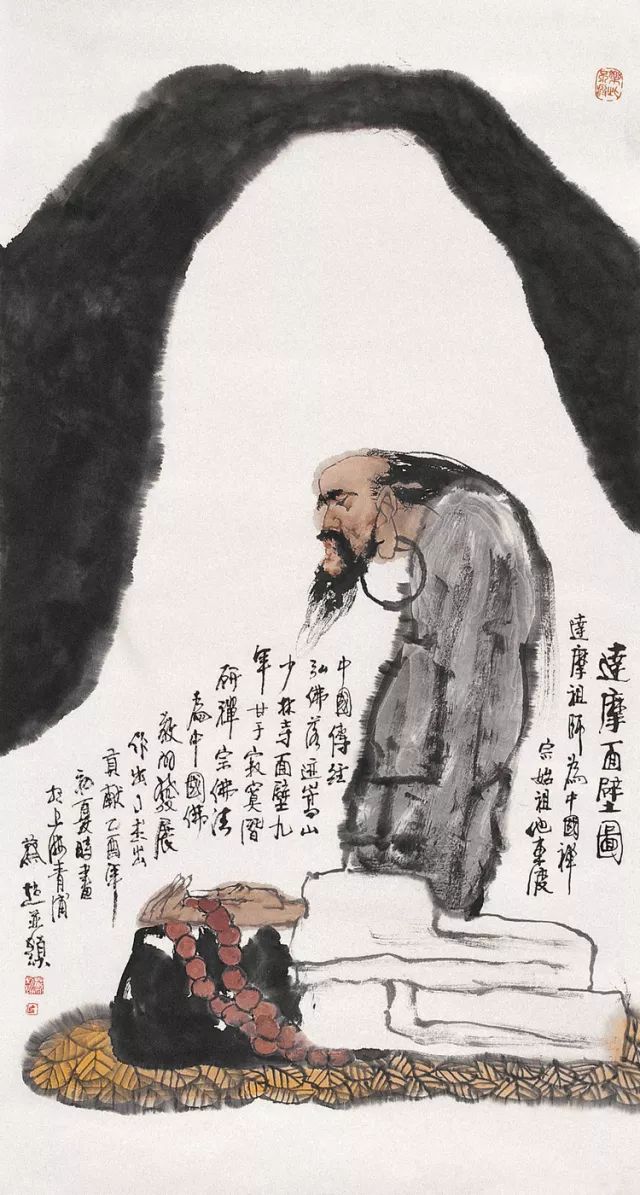 達摩面壁圖
達摩祖師為中國禪
宗始祖他東渡
中國傳經
弘佛落迹嵩山
少林寺面壁九
年甘于寂寞潛
研禪宗佛法
為中國佛
教的發展
作出了杰出
貢獻乙酉年
初夏時畫
於上海青浦
蔡超並題